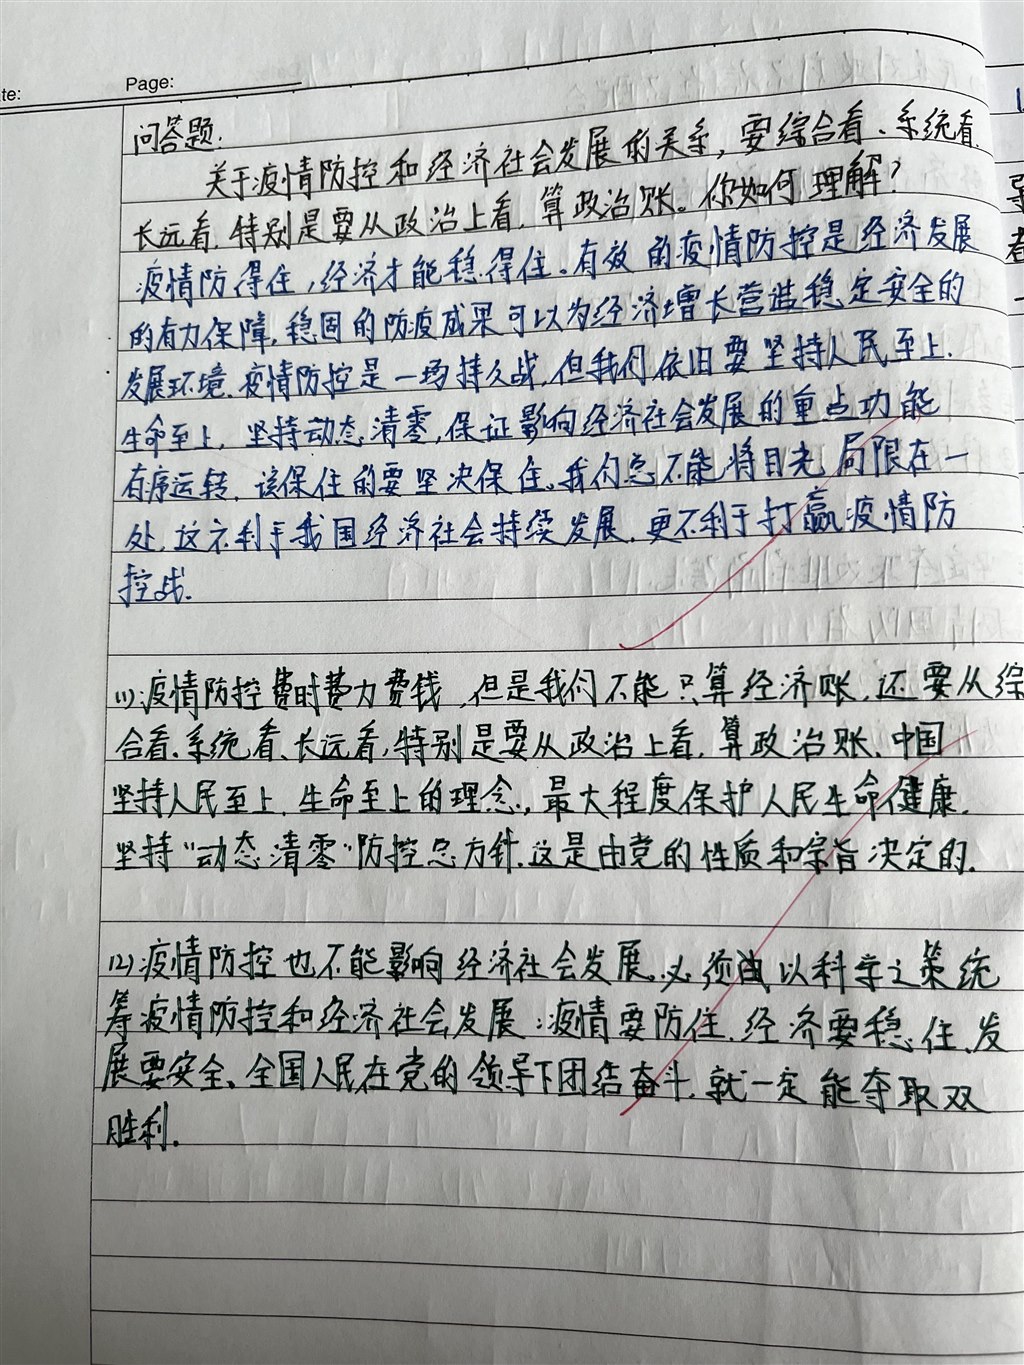 te:
Page:
问答题.
关于疫情防控和经济社会发展的关系,要综合看、系统看
长远看,特别是要从政治上看,算政治账。你如何理解?
疫情防得住,经济才能稳得住。有效的疫情防控是经济发展
的有力保障,稳固的防疫成果可以为经济增长营造稳定安全的
发展环境.疫情防控是一场持久战,但我们依旧要坚持人民至上.
生命至上,坚持动态清零,保证影响经济社会发展的重点功能
有序运转,该保住的要坚决保住。我们总不能将目光局限在一
处,这不利于我国经济社会持续发展,更不利于打赢疫情防
控战.
(1).疫情防控费时费力费钱,但是我们不能只算经济账,还要从综
合看.系统看、长远看,特别是要从政治上看,算政治账.中国
坚持人民至上.生命至上的理念,最大程度保护人民生命健康.
坚持“动态清零”防控总方针.这是由党的性质和宗旨决定的.
(2).疫情防控也不能影响经济社会发展。必须以科学之策统
筹疫情防控和经济社会发展:疫情要防住.经济要稳住、发
展要安全、全国人民在党的领导下团结奋斗.就一定能夺取双
胜利.